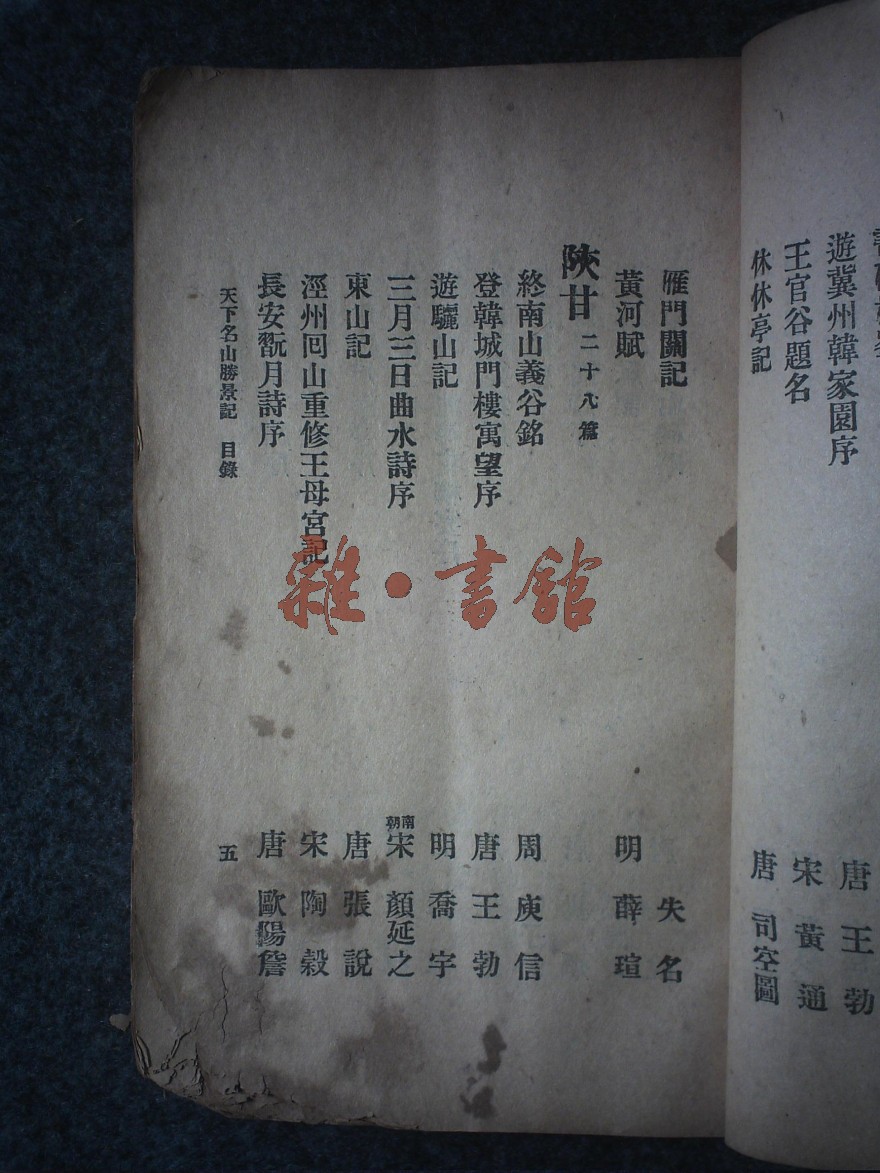 遊冀州韓家園序 唐 王勃
王官谷題名 宋 黃通
休休亭記 唐 司空圖
雁門關記 失名
黃河賦 明 薛瑄
陝甘 二十八篇
終南山義谷銘 周 庾信
登韓城門樓寓望序 唐 王勃
遊驪山記 明 喬宇
三月三日曲水詩序 南朝宋 顏延之
東山記 唐 張說
涇州回山重修王母宮記 宋 陶穀
長安翫月詩序 唐 歐陽詹
天下名山勝景記 目錄 五
雜·書館